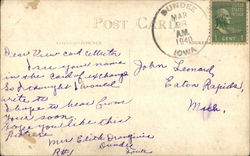 POST CARD
DUNDEE
MAR
28
AM
1940
IOWA
1 CENT 1
Dear View card collector
I saw your name
in the card of exchange
So I thought I would
write to
I hope to hear from
you soon
hope you like this
Picture
Mrs Edith
R#1 Dundee
Iowa
John Leonard,
Eaton Rapids,
Mich.